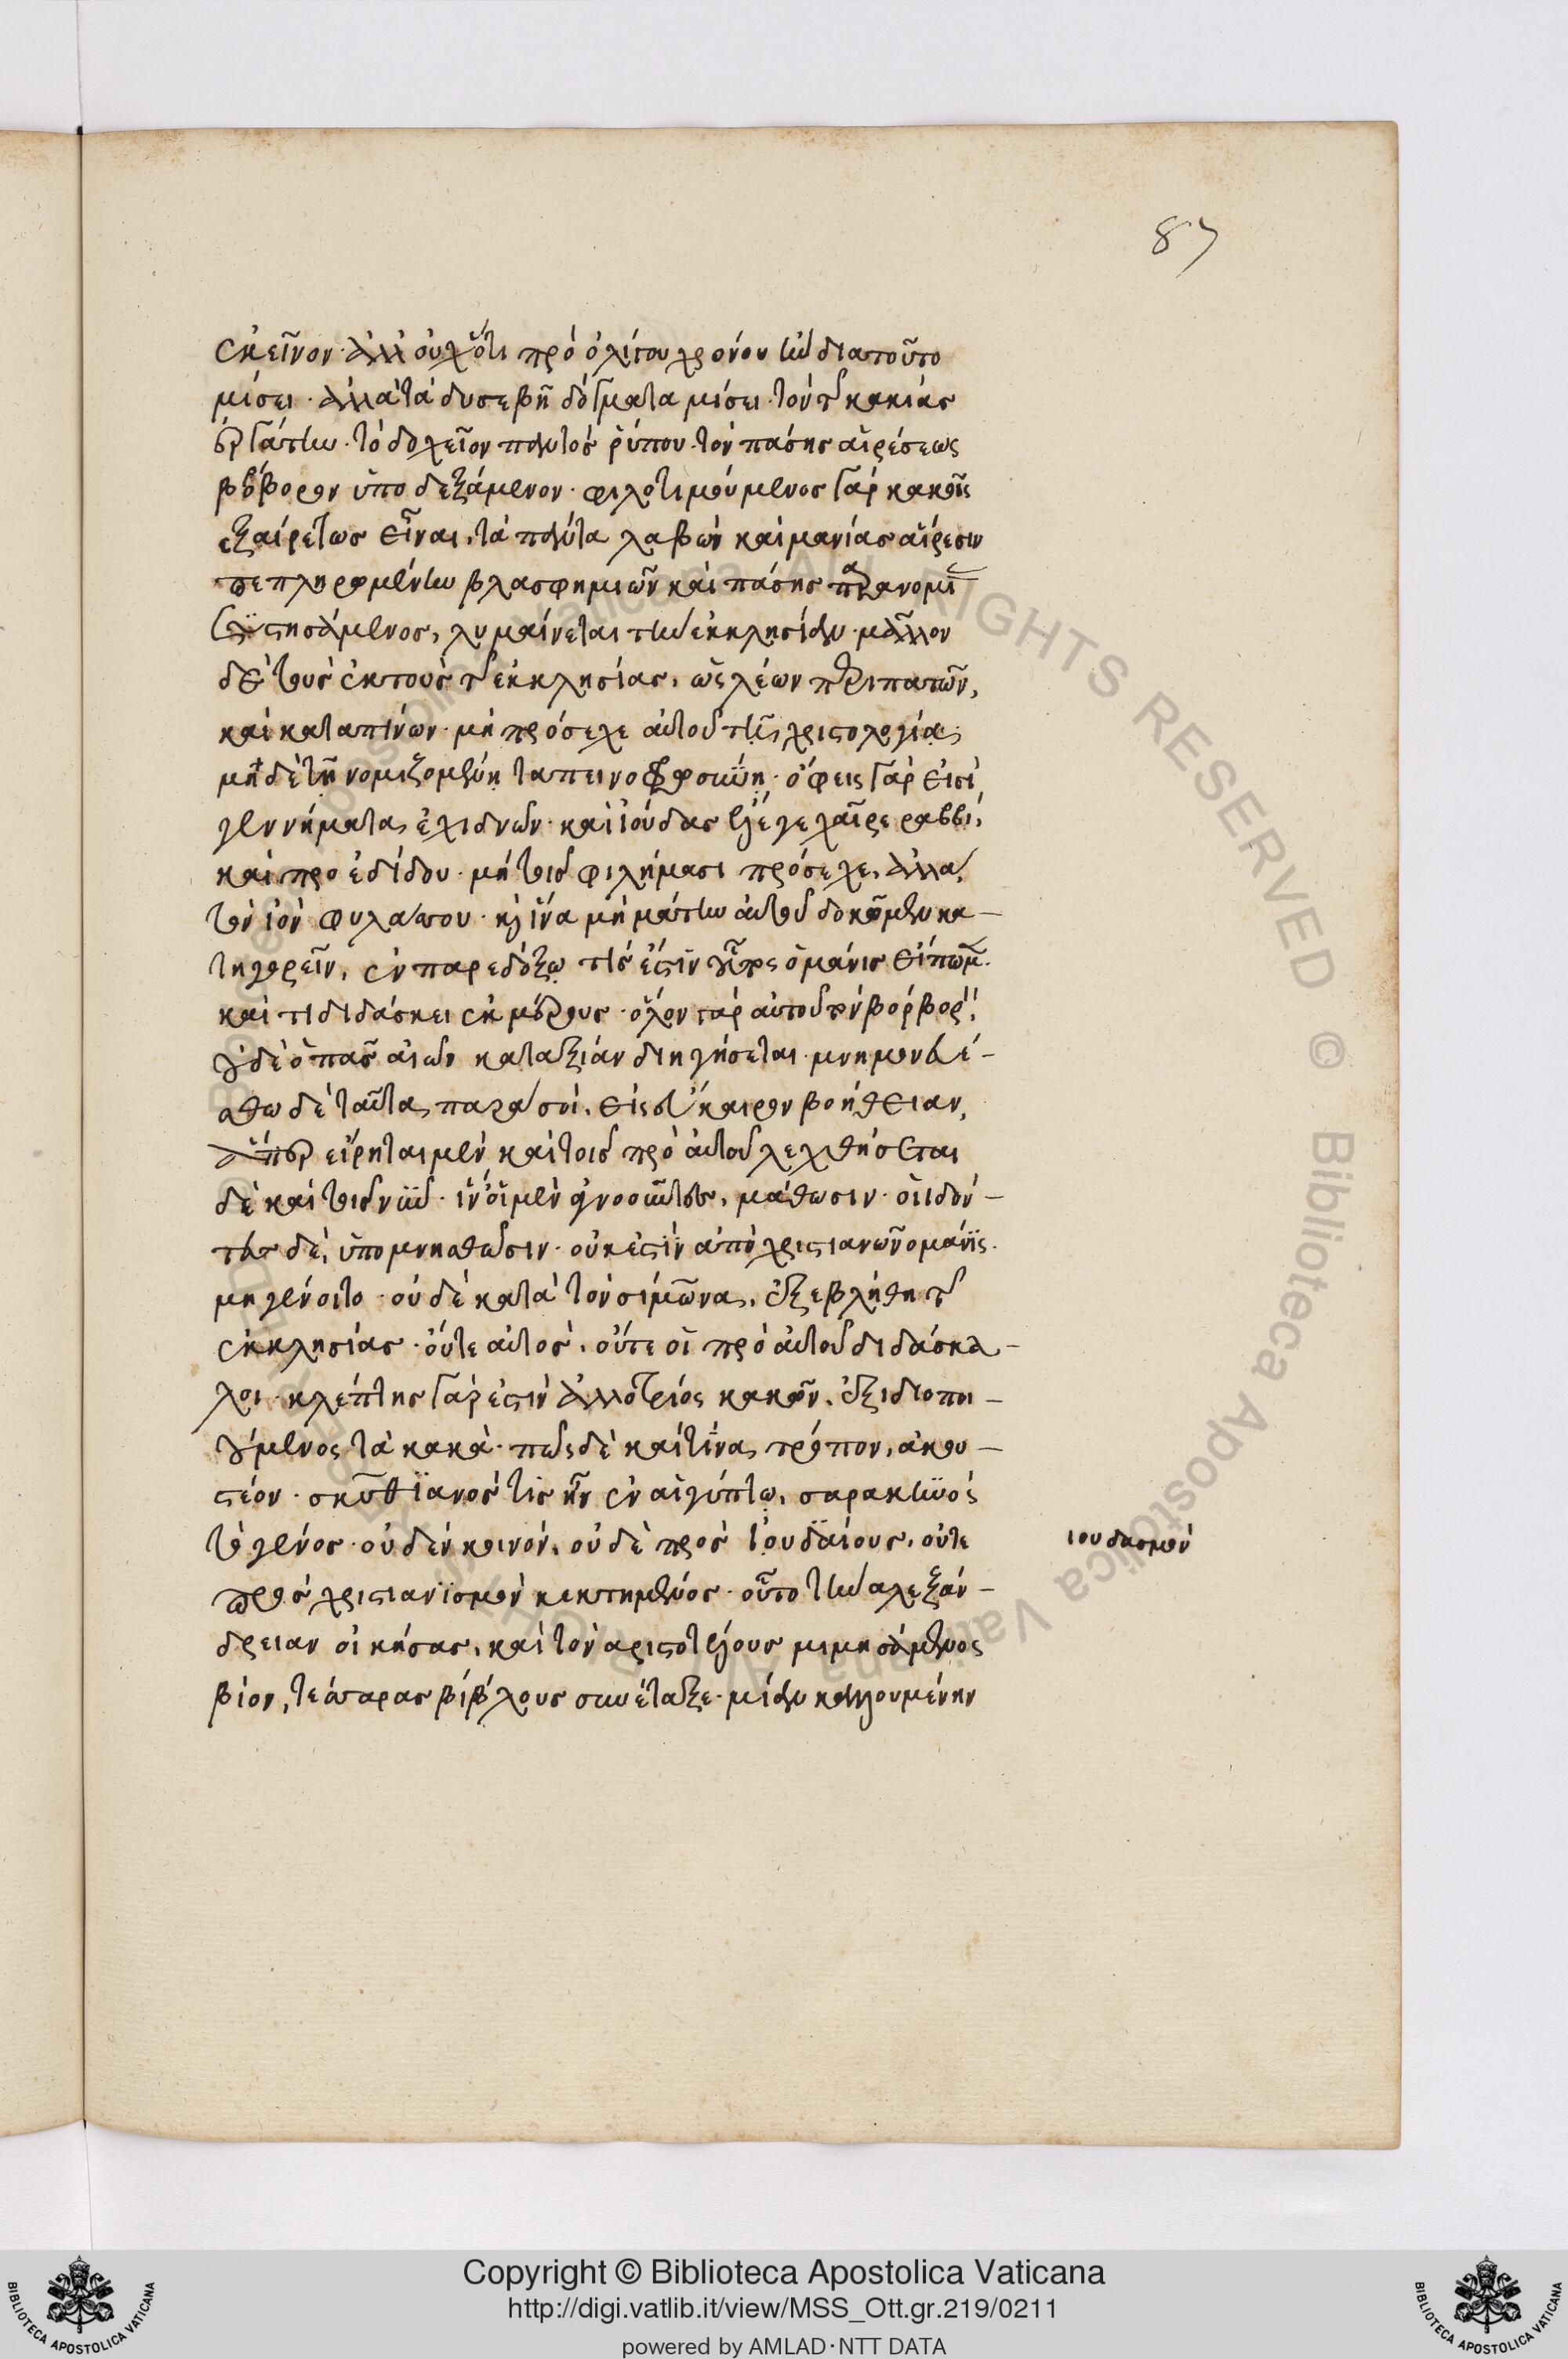 87
ἐκεῖνον· ἀλλ' οὐχ' ὅτι πρὸ ὀλίγου χρόνου ἦν διατοῦτο
μίσει· ἀλλὰ τὰ δυσεβῆ δόγματα μίσει· τὸν τῆς κακίας
ἐργάτην· τὸ δοχεῖον παντὸς ῥύπου· τὸν πάσης αἱρέσεως
βόρβορον ὑποδεξάμενον· φιλοτιμούμενος γὰρ κακοῖς
ἐξαίρετως εἶναι, τὰ πάντα λαβὼν καὶ μανίας αἵρεσιν
πεπληρομένην βλασφημιῶν καὶ πάσης παρανομί
συστησάμενος, λυμαίνεται τὴν ἐκκλησίαν· μᾶλλον
δὲ τοὺς ἐκτοὺς τῆς ἐκκλησίας, ὡς λέων περιπατῶν,
καὶ καταπίνων· μὴ πρόσεχε αὐτοῦ τῆς χριστολογίας
μὴ δὲ τῆ νομιζομένη ταπεινοφροσύνη· ὄφεις γὰρ εἰσὶ
γεννήματα ἐχιδνῶν· καὶ ἰούδας ἔλεγε χαῖρε ραββί,
καὶ προεδίδου· μὴ τοῖς φιλήμασι πρόσεχε, ἀλλὰ
τὸν ἰὸν φυλάττου· κ' ἵνα μὴ μάτην αὐτοῦ δοκῶμεν κα-
τηγορεῖν, ἐν παρεδόξω τίς ἐστὶν οὗτος ὁ μάνις εἴπωμ̃.
καὶ τί διδάσκει ἐκ μέρους· ὅλον γὰρ αὐτοῦ τὸν βόρβορ'
οὐδὲ ὁ πᾶς αἰὼν καταξίαν διηγήσεται· μνημονευέ-
σθω δὲ ταῦτα παρὰ σοὶ, εἰς εὔκαιρον βοήθειαν,
ἅπερ εἴρηται μὲν καὶ τοῖς πρὸ αὐτοῦ λεχθήσεται
δὲ καὶ τοῖς νῦν· ἵν' οἱ μὲν ἀγνοοῦντες, μάθωσιν· οἱ ἰδόν-
τες δὲ, ὑπομνησθῶσιν· οὐκ ἐστὶν ἀπὸ χριστιανῶν ὁ μάνις.
μὴ γένοιτο· οὐδὲ κατὰ τὸν σίμωνα, ἐξεβλήθη τῆς
ἐκκλησίας· οὔτε αὐτὸς, οὔτε οἱ πρὸ αὐτοῦ διδάσκα-
λοι· κλέπτης γὰρ ἐστὶν ἀλλότριος κακῶν, ἐξιδιοποι-
ούμενος τὰ κακὰ· πῶς δὲ καὶ τίνα τρόπον, ἀκου-
στέον· σκυθϊανὸς τὶς ἦν ἐν αἰγύπτω, σαρακηνὸς
τὸ γένος· οὐδὲν κοινὸν, οὐδὲ πρὸς ἰουδαίους, οὔτε
πρὸς χριστιανϊσμὸν κεκτημένος· οὗτο τὴν ἀλεξάν-
δρειαν οἰκήσας, καὶ τὸν ἀριστοτέλους μιμησάμενος
βίον, τέσσαρας βίβλους συνέταξε· μίαν καλουμένην
ιουδασμὸν
Copyright © Biblioteca Apostolica Vaticana
http://digi.vatlib.it/view/MSS_Ott.gr.219/0211
powered by AMLAD·NTT DATA